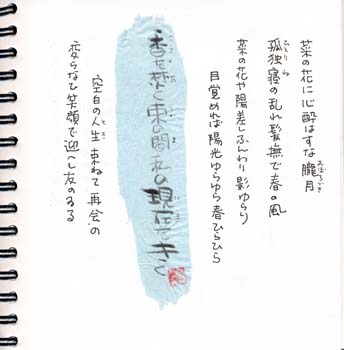 菜の花に心酔はずな朧月
おぼろづき
孤独寝の乱れ髪撫で春の風
ひとりね
菜の花や陽差しふんわり影ゆらり
目覚めれば陽光ゆらゆら春ひらひら
香を焚く束の間私の現在をきく
空白の人生束ねて再会の
とき
変らなひ笑顔で迎へし友のゐる